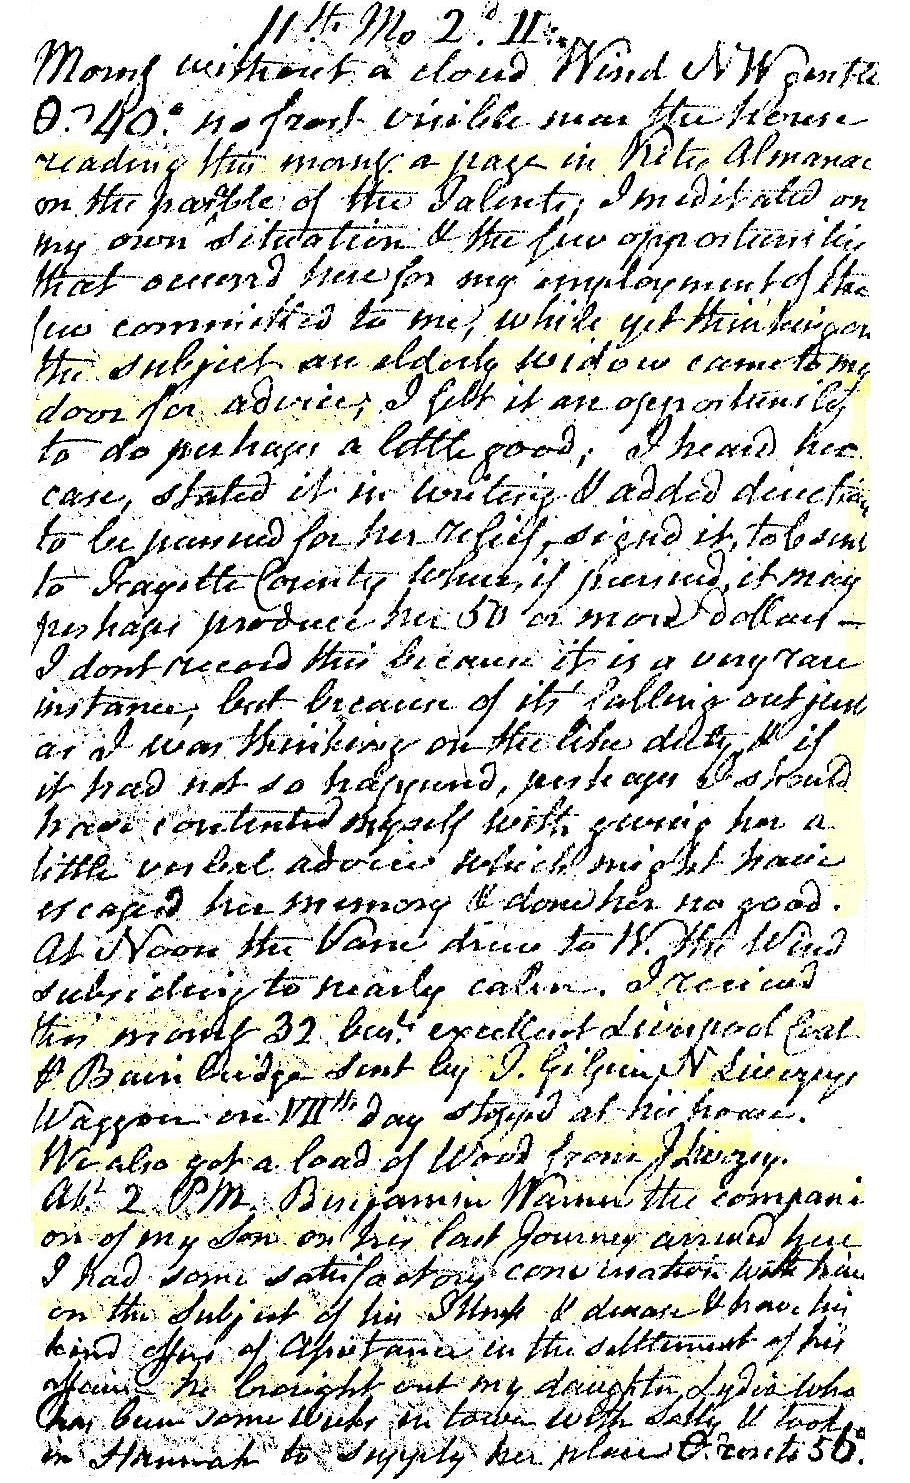 11th Mo 2d II:
Morng without a cloud Wind NW gentle
40° no frost visible near the house
reading this morng a page in Kite's Almanac
on the parable of the Talents, I meditated on
my own situation & the few opportunities
that occurrd here for my employment of the
few committed to me, while yet thinking on
the subject an elderly widow came to my
door for advice; I felt it an opportunity
to do perhaps a little good; I heard her
case, stated it in writing & added directions
to be pursued for her relief, signd it, to be sent
to Fayette County where, if pursued, it may
perhaps produce her 50 or more Dollars —
I dont record this because it is a very rare
instance, but because of its falling out just
as I was thinking on the like duty & if
it had not so happened, perhaps I should
have contented myself with giving her a
little verbal advice which might have
escaped her memory & done her no good.
At Noon the Vane drew to W. the Wind
subsiding to nearly calm. I received
this morng 32 bush excellent Liverpool Coal
& Bainbridge sent by J. Gilpin N Livezeys
Waggon on VIIth day stopped at his home.
We also got a load of Wood from J Livezey.
Abt 2 PM. Benjamin Warner the compani
on of my Son on his last Journey arrived here
I had some satisfactory conversation with him
on the subject of his Illness & decease & have his
kind offers of Assistance in the settlement of his
affairs he brought out my daughter Lydia who
has been some weeks in town with Sally & took
in Hannah to supply her place rose to 56°.